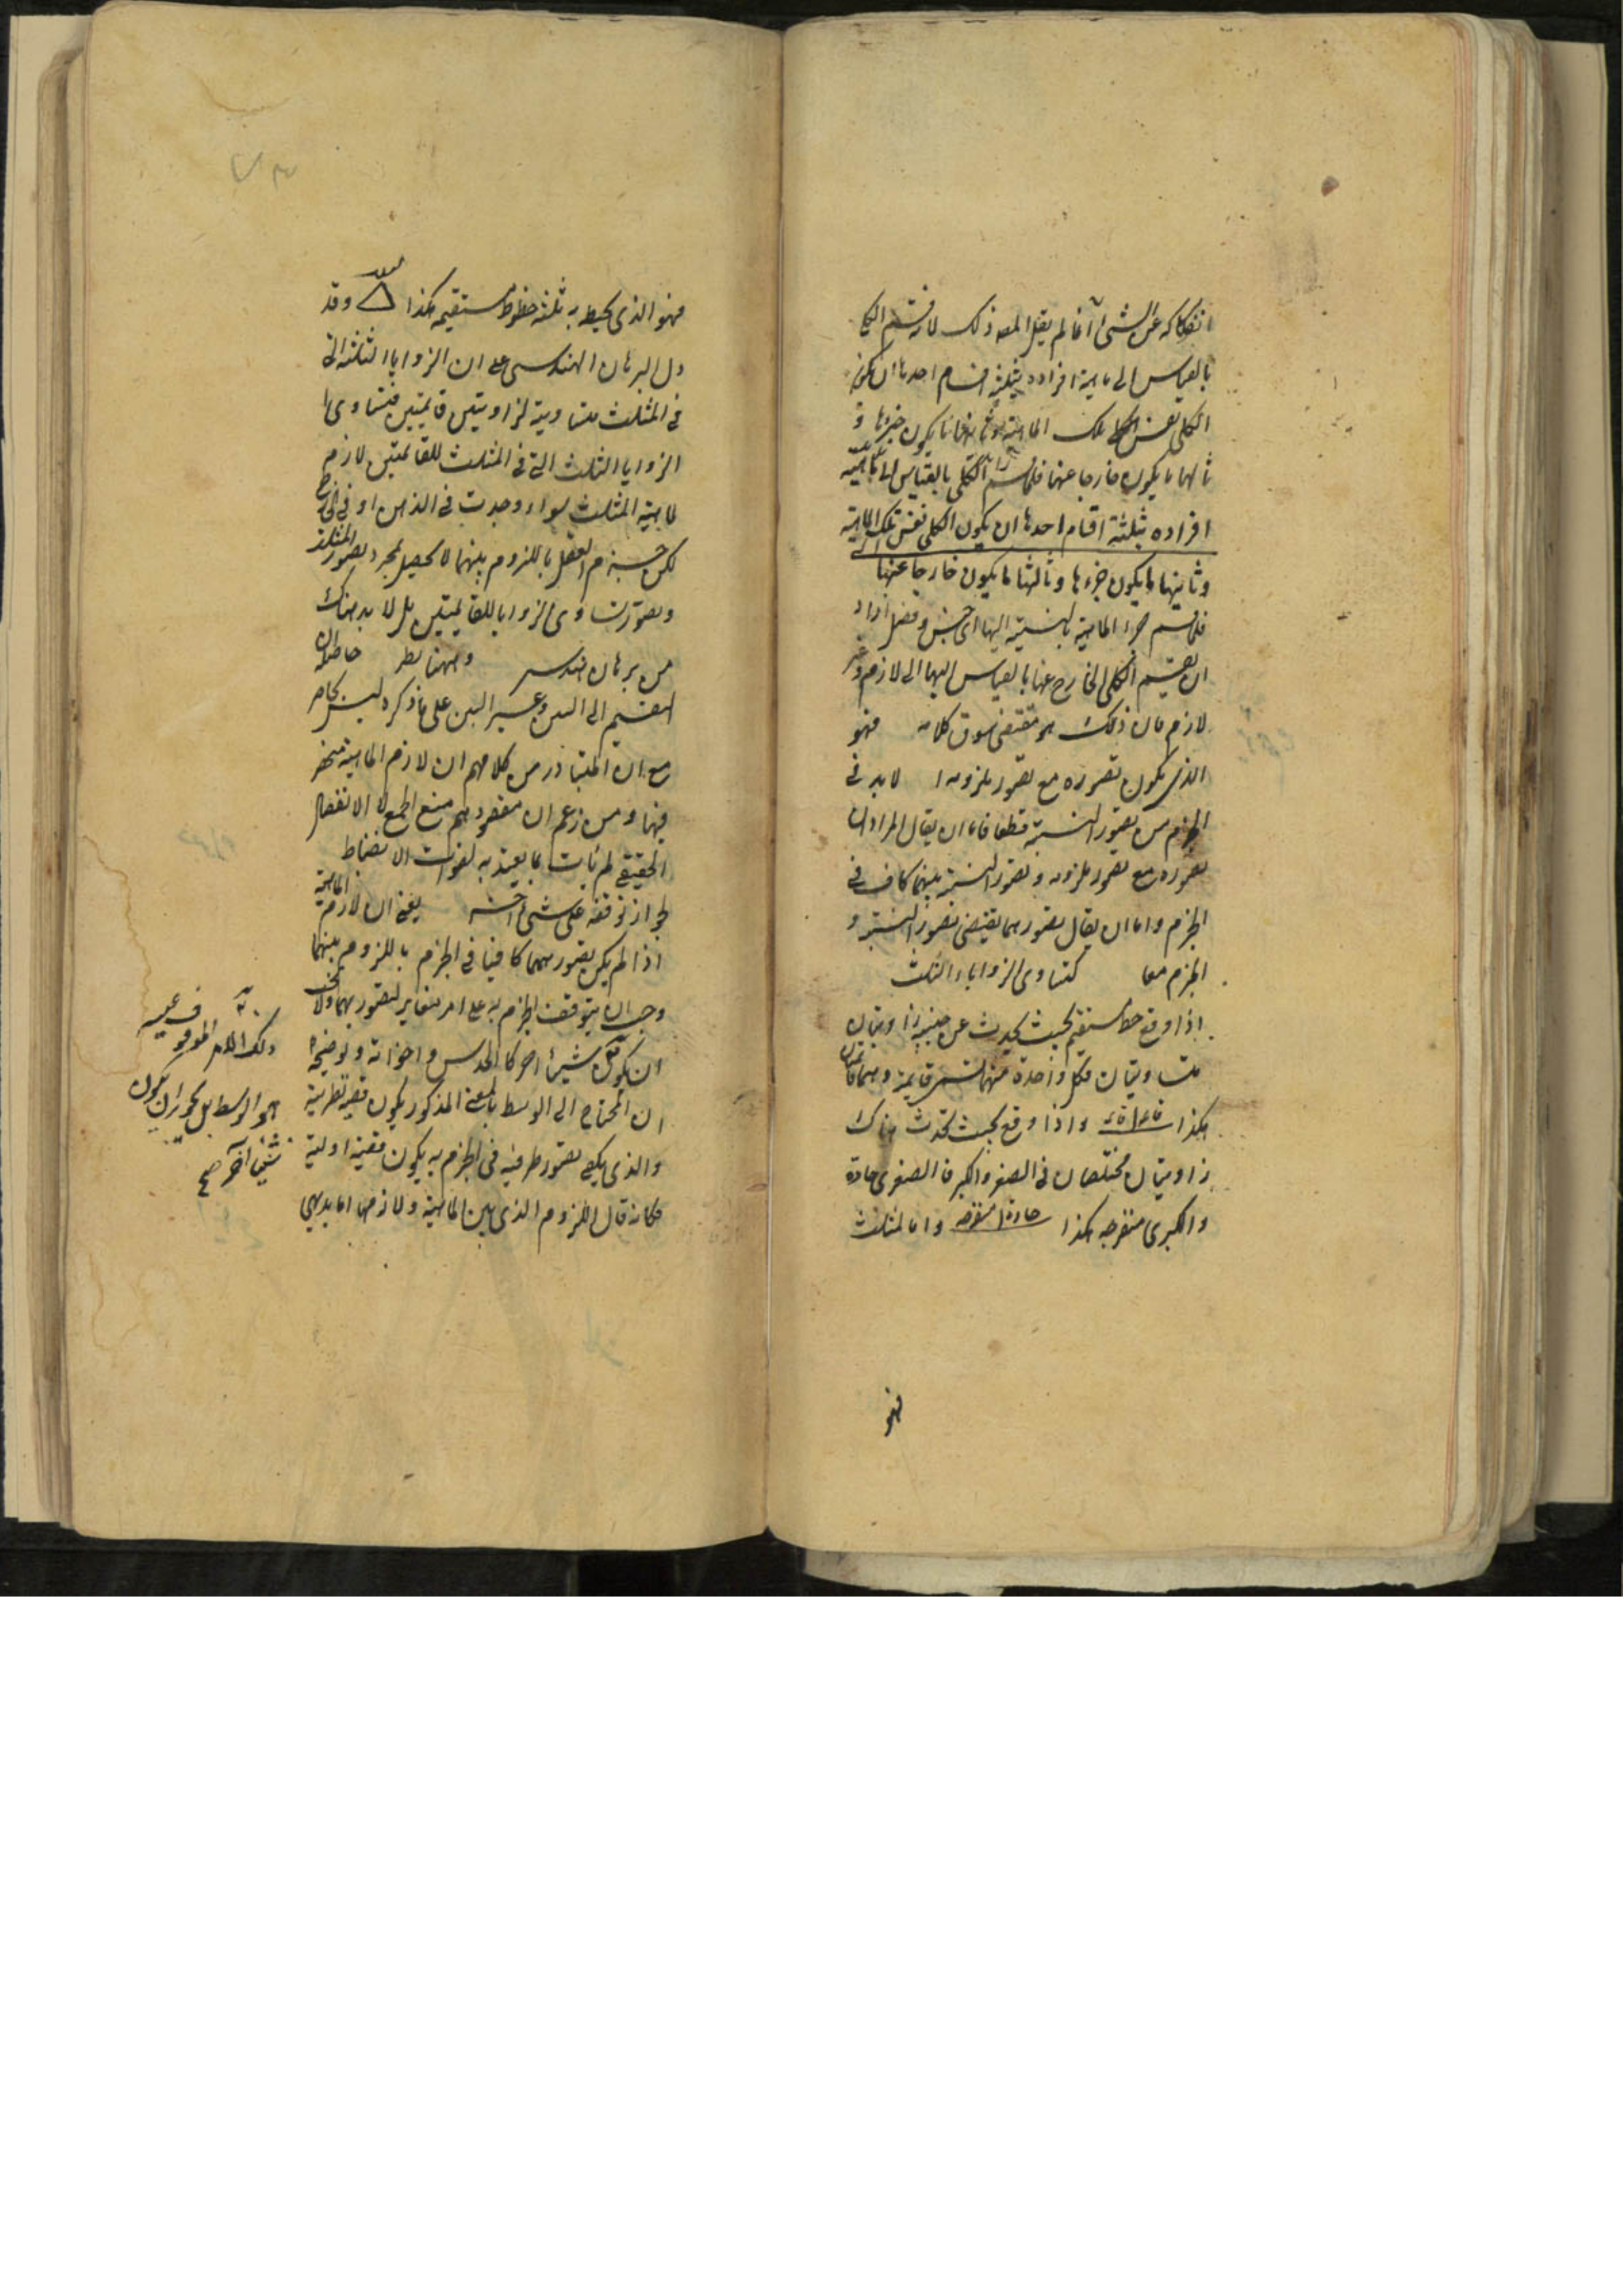 انفكاكه عن الشئ انما لم يقل المص ذلك لانه قسم الكلى
بالقياس الى ماهية افراده بثلثة اقسام احدها ان يكون
الكلى نفس تلك الماهية وثانيها ما يكون جزءها و
ثالثها ما يكون خارجا عنها فلما قسم الكلى بالقياس الى ماهية
افراده بثلثة اقسام احدها ان يكون الكلى نفس تلك الماهية
وثانيها ما يكون جزءها وثالثها ما يكون خارجا عنها
فلما قسم جزء الماهية بالنسبة اليها الى جنس وفصل اراد
ان يقسم الكلى الخارج عنها بالقياس اليها الى لازم وغير
لازم فان ذلك هو مقتضى سوق كلامه فهو
الذى يكون تصوره مع تصور ملزومه لا بد فى
الجزم من تصور النسبة قطعا فاما ان يقال المراد ان
تصوره مع تصور ملزومه وتصور النسبة بينهما كاف فى
الجزم واما ان يقال تصورهما يقتضى تصور النسبة و
الجزم معا كتساوى الزوايا الثلث
اذا وقع خط مستقيم بحيث يحدث عن جنبيه زاويتان
متساويتان فكل واحدة منهما تسمى قايمة وهما قايمتان
هكذا قائمة قائمة واذا وقع بحيث تحدث هناك
زاويتان مختلفتان فى الصغر والكبر فالصغرى حادة
والكبرى منفرجه هكذا حادة منفرجه واما المثلث
فهو
فهو الذى يحيط به ثلثة خطوط مستقيمة هكذا وقد
دل البرهان الهندسى على ان الزوايا الثلثة التى
فى المثلث متساوية لزاويتين قايمتين فتساوى
الزوايا الثلث التى فى المثلث للقايمتين لازم
لماهية المثلث سواء وجدت فى الذهن او فى الخارج
لكن جزم العقل باللزوم بينهما لا يحصل بمجرد تصور المثلث
وتصور تساوى الزوايا للقايمتين بل لا بد هناك
من برهان هندسى وههنا نظر حاصله ان
التقسيم الى البين وغير البين على ما ذكره ليس بحاصر
مع ان المتبادر من كلامهم ان لازم الماهية منحصر
فيهما ومن زعم ان مقصودهم منع الجمع لا الانفصال
الحقيقى لم يأت بما يعتد به لفوات الانضباط
لجواز توقفه على شئ آخر يعنى ان لازم الماهية
اذا لم يكن تصورهما كافيا فى الجزم باللزوم بينهما
وجب ان يتوقف الجزم به على امر مغاير لتصورهما ولا يجب
ان يكون شيئا اخر كالحدس واخواته وتوضيحه
ان المحتاج الى الوسط بالمعنى المذكور يكون قضية نظرية
والذى يكفى تصور طرفيه فى الجزم به يكون قضية اولية
فكانه قال اللزوم الذى بين الماهية ولازمها اما بديهى
ذلك الامر الموقوف عليه
هو الوسط بل يجوز ان يكون
شيئا آخر صح